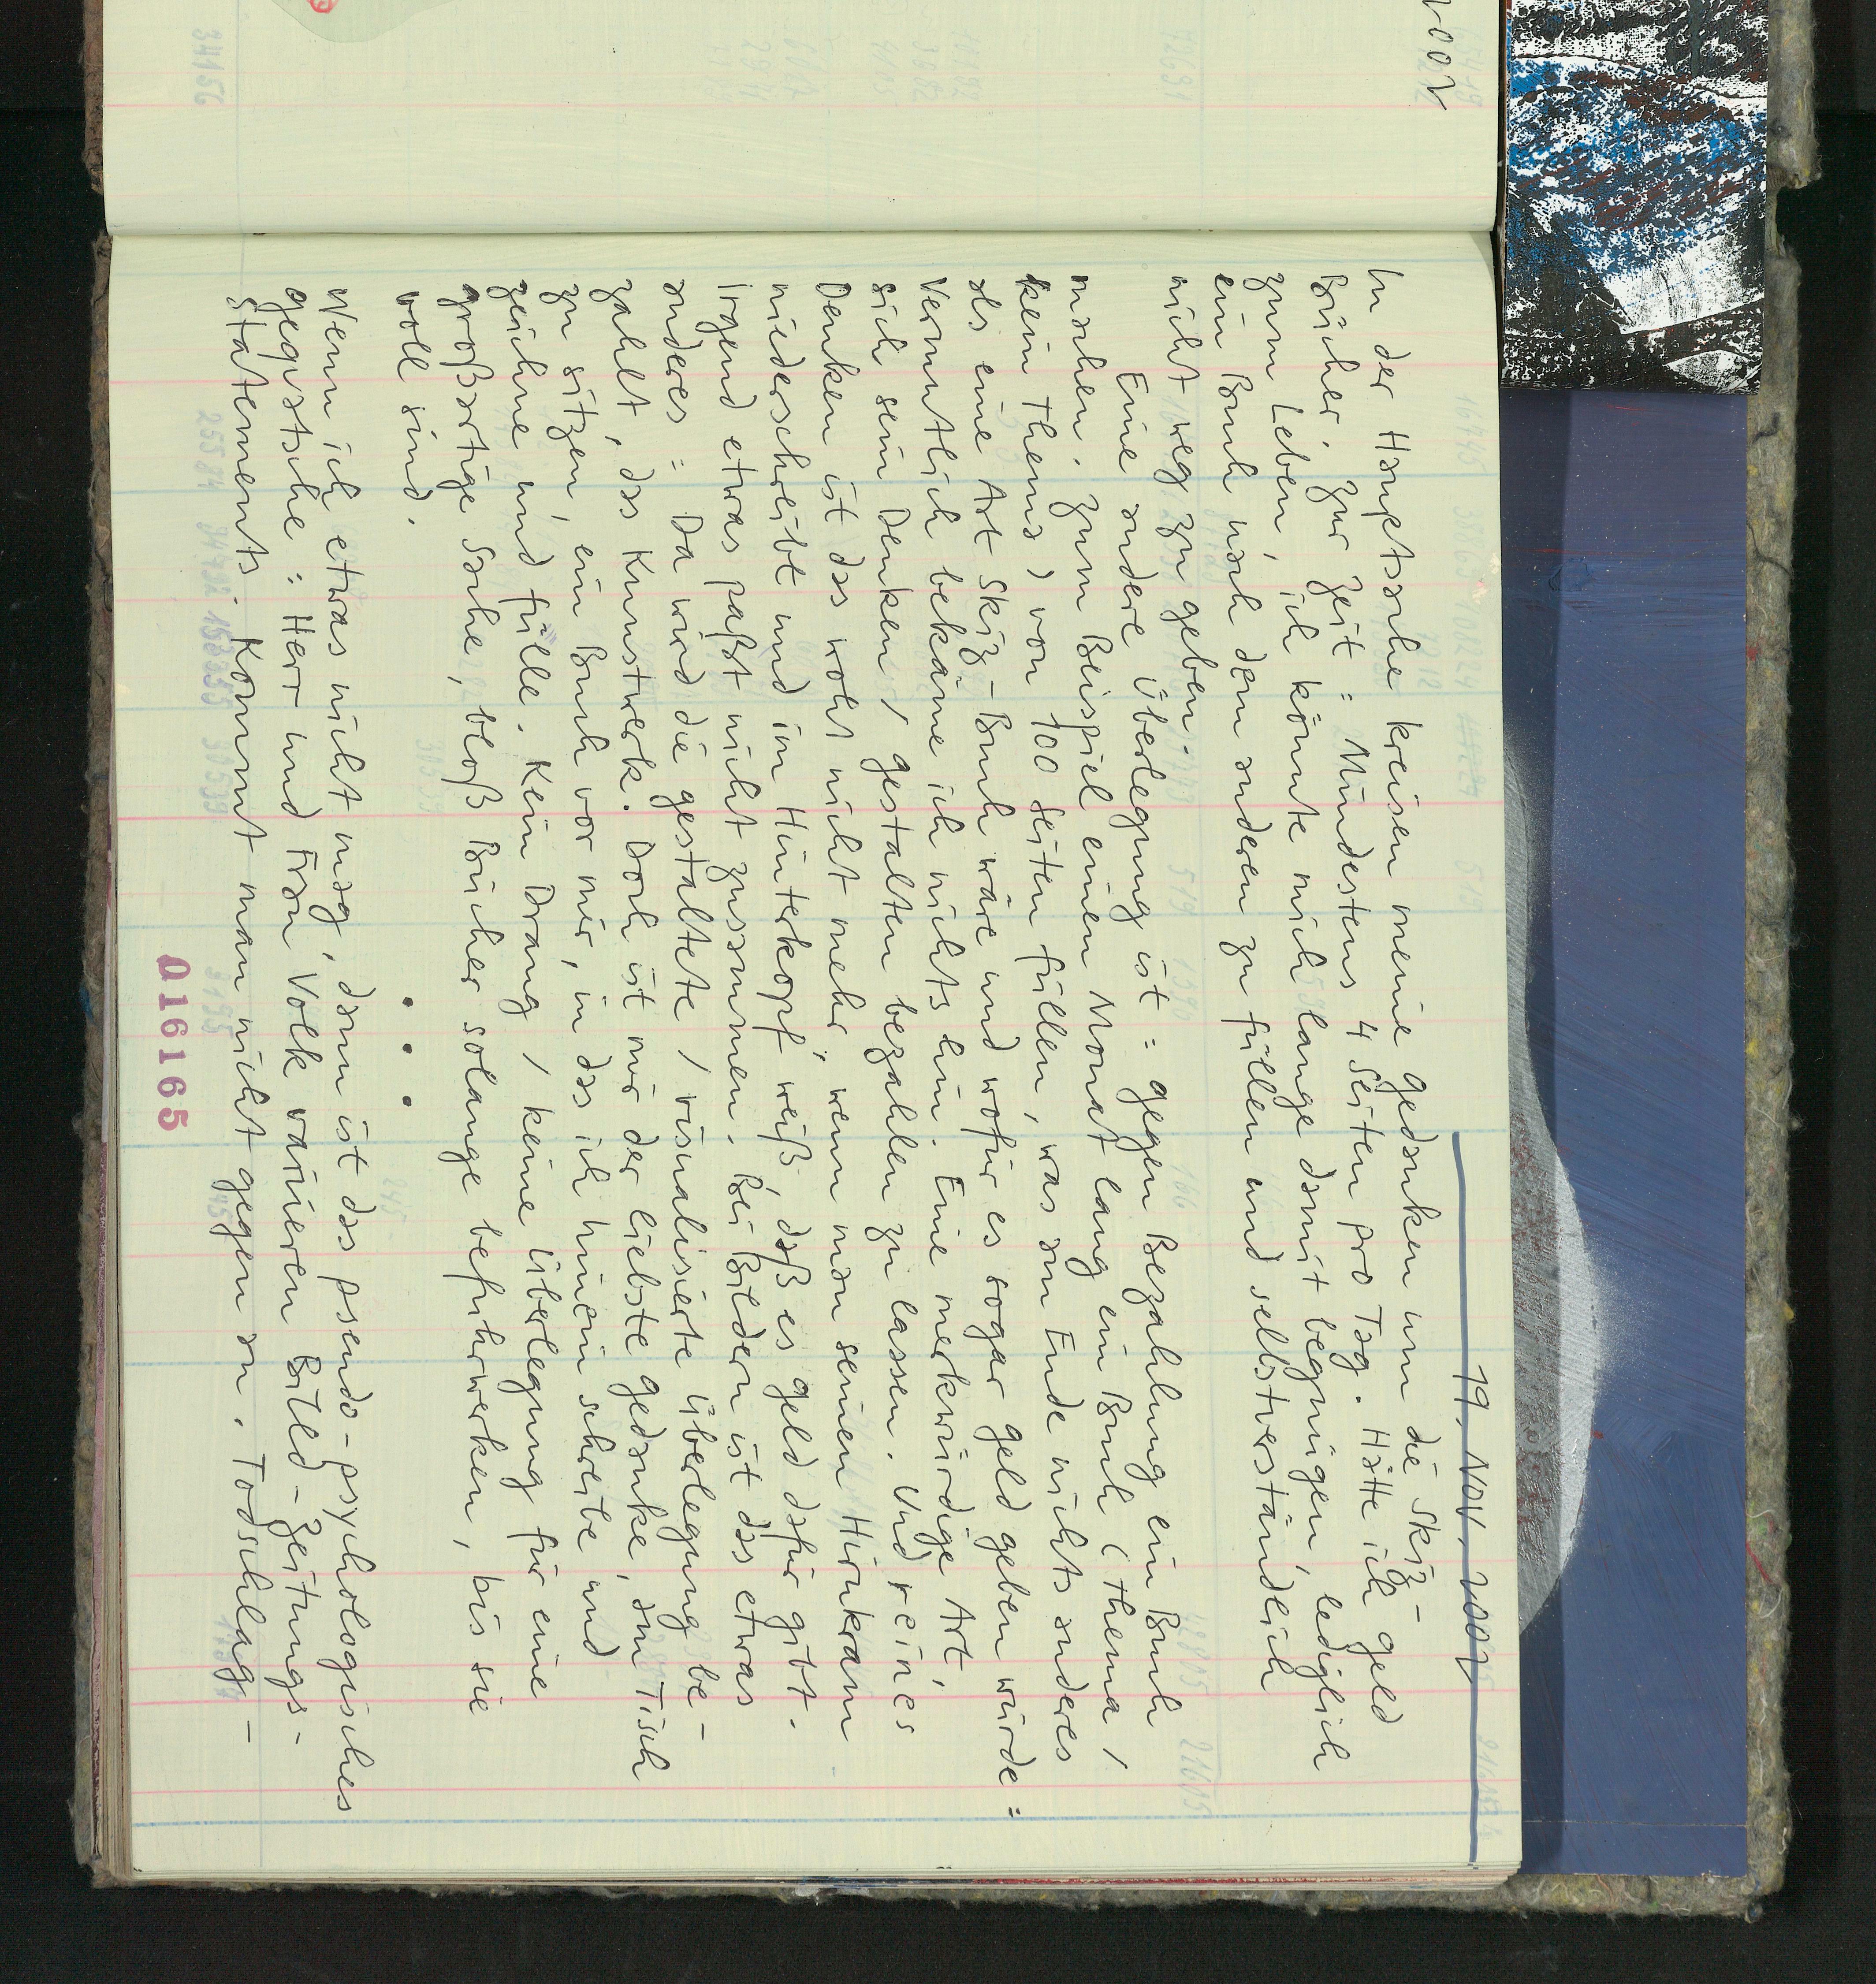 2002
19. Nov. 2002
In der Hauptsache kreisen meine Gedanken um die Skiz-
Bücher. Zur Zeit = Mindestens 4 Seiten pro Tag. Hätte ich Geld
zum Leben, ich könnte mich lange damit begnügen, lediglich
ein Buch nach dem anderen zu füllen und selbstverständlich
nicht weg zu geben.
Eine andere Überlegung ist = gegen Bezahlung ein Buch
machen. Zum Beispiel einen Monat lang ein Buch (Thema /
kein Thema) von 100 Seiten füllen, was am Ende nichts anderes
als eine Art Skiz-Buch wäre und wofür es sogar Geld geben würde =
Vermutlich bekäme ich nichts hin. Eine merkwürdige Art,
sich sein Denken / Gestalten bezahlen zu lassen. Und reines
Denken ist das wohl nicht mehr, wenn man seinen Hirnkram
niederschreibt und im Hinterkopf weiß, daß es Geld dafür gibt.
Irgend etwas paßt nicht zusammen. Bei Bildern ist das etwas
anderes = Da wird die gestaltete / visualisierte Überlegung be-
zahlt, das Kunstwerk. Doch ist mir der liebste Gedanke, am Tisch
zu sitzen, ein Buch vor mir, in das ich hinein schreibe und
zeichne und fülle. Kein Drang / keine Überlegung für eine
großartige Sache, bloß Bücher solange befuhrwerken, bis sie
voll sind.
• • •
Wenn ich etwas nicht mag, dann ist das pseudo-psychologisches
Gequatsche = Herr und Frau Volk variieren Bild-Zeitungs-
Statements. Kommt man nicht gegen an. Todschlag-
016165